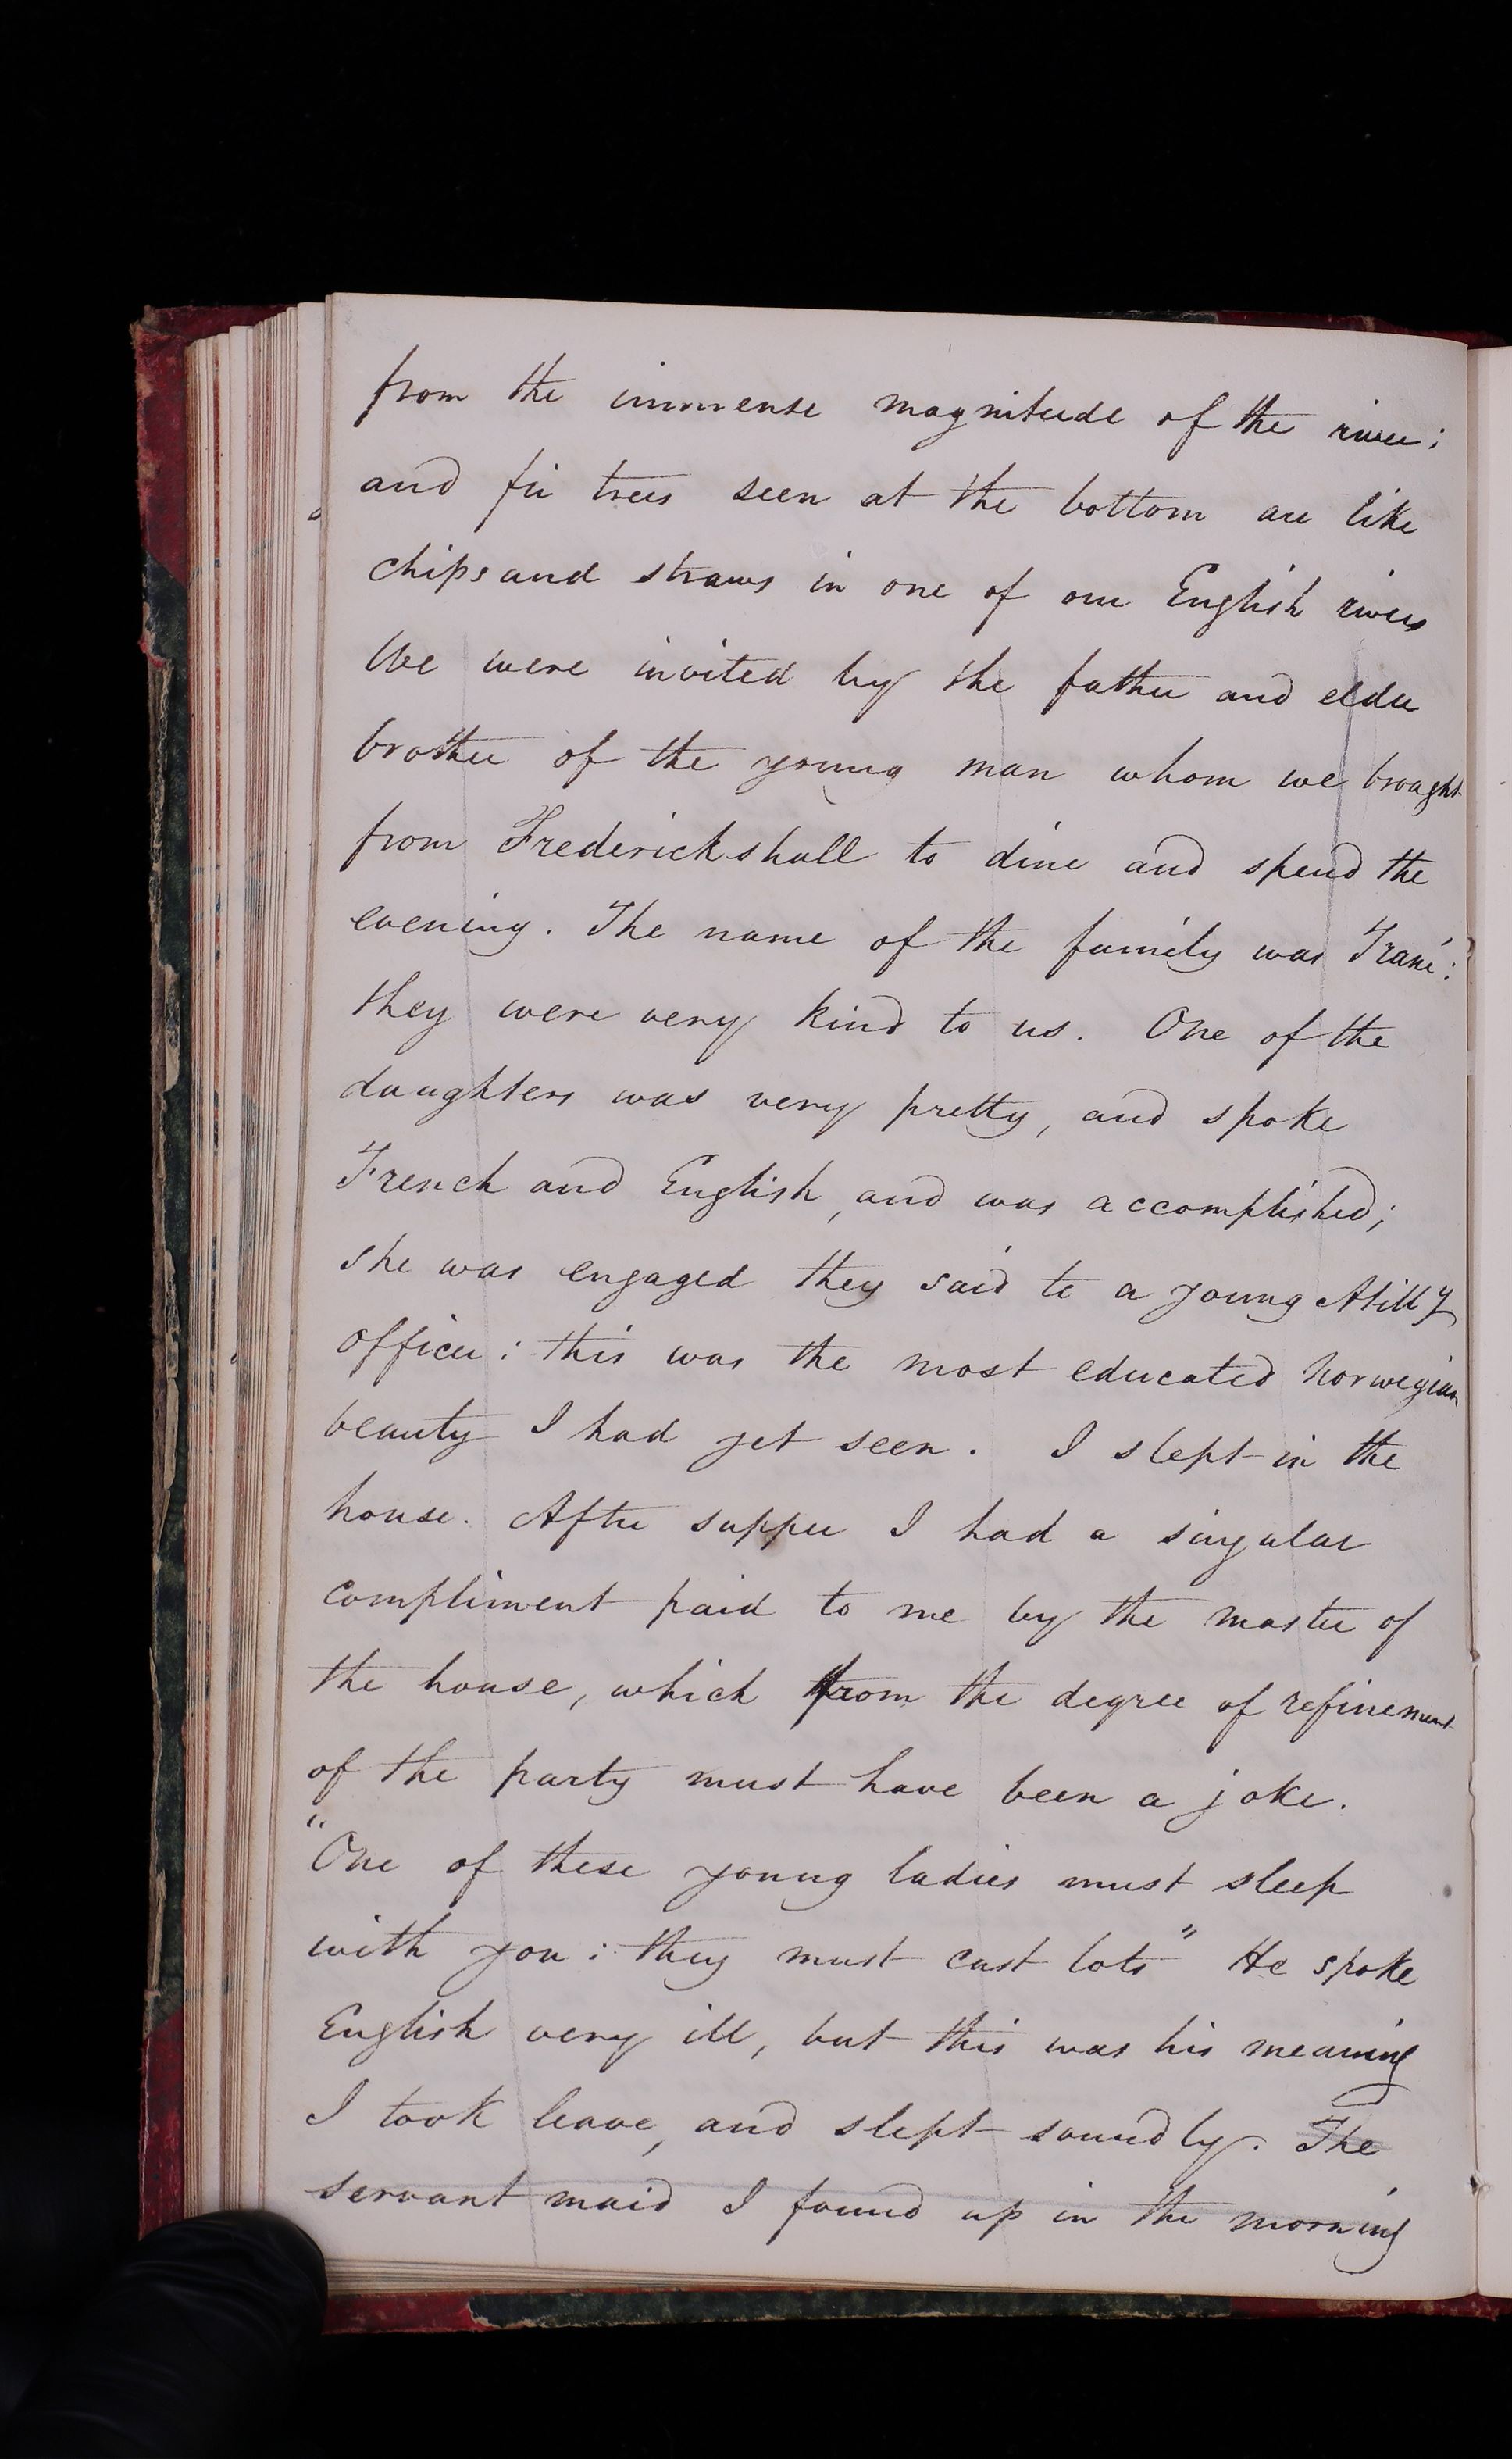 from the immense magnitude of the river;
and fir trees seen at the bottom are like
chips and straws in one of our English rivers
We were invited by the father and elder
brother of the young man whom we brought
from Frederickshall to dine and spend the
evening. The name of the family was Trané:
they were very kind to us. One of the
daughters was very pretty, and spoke
French and English, and was accomplished;
she was engaged they said to a young Atilly
officer: this was the most educated Norwegian
beauty I had yet seen. I slept in the
house. After supper I had a singular
compliment paid to me by the master of
the house, which from the degree of refinement
of the party must have been a joke.
"One of these young ladies must sleep
with you: they must cast lots" He spoke
English very ill, but this was his meaning
I took leave, and slept soundly. The
servant maid I found up in the morning